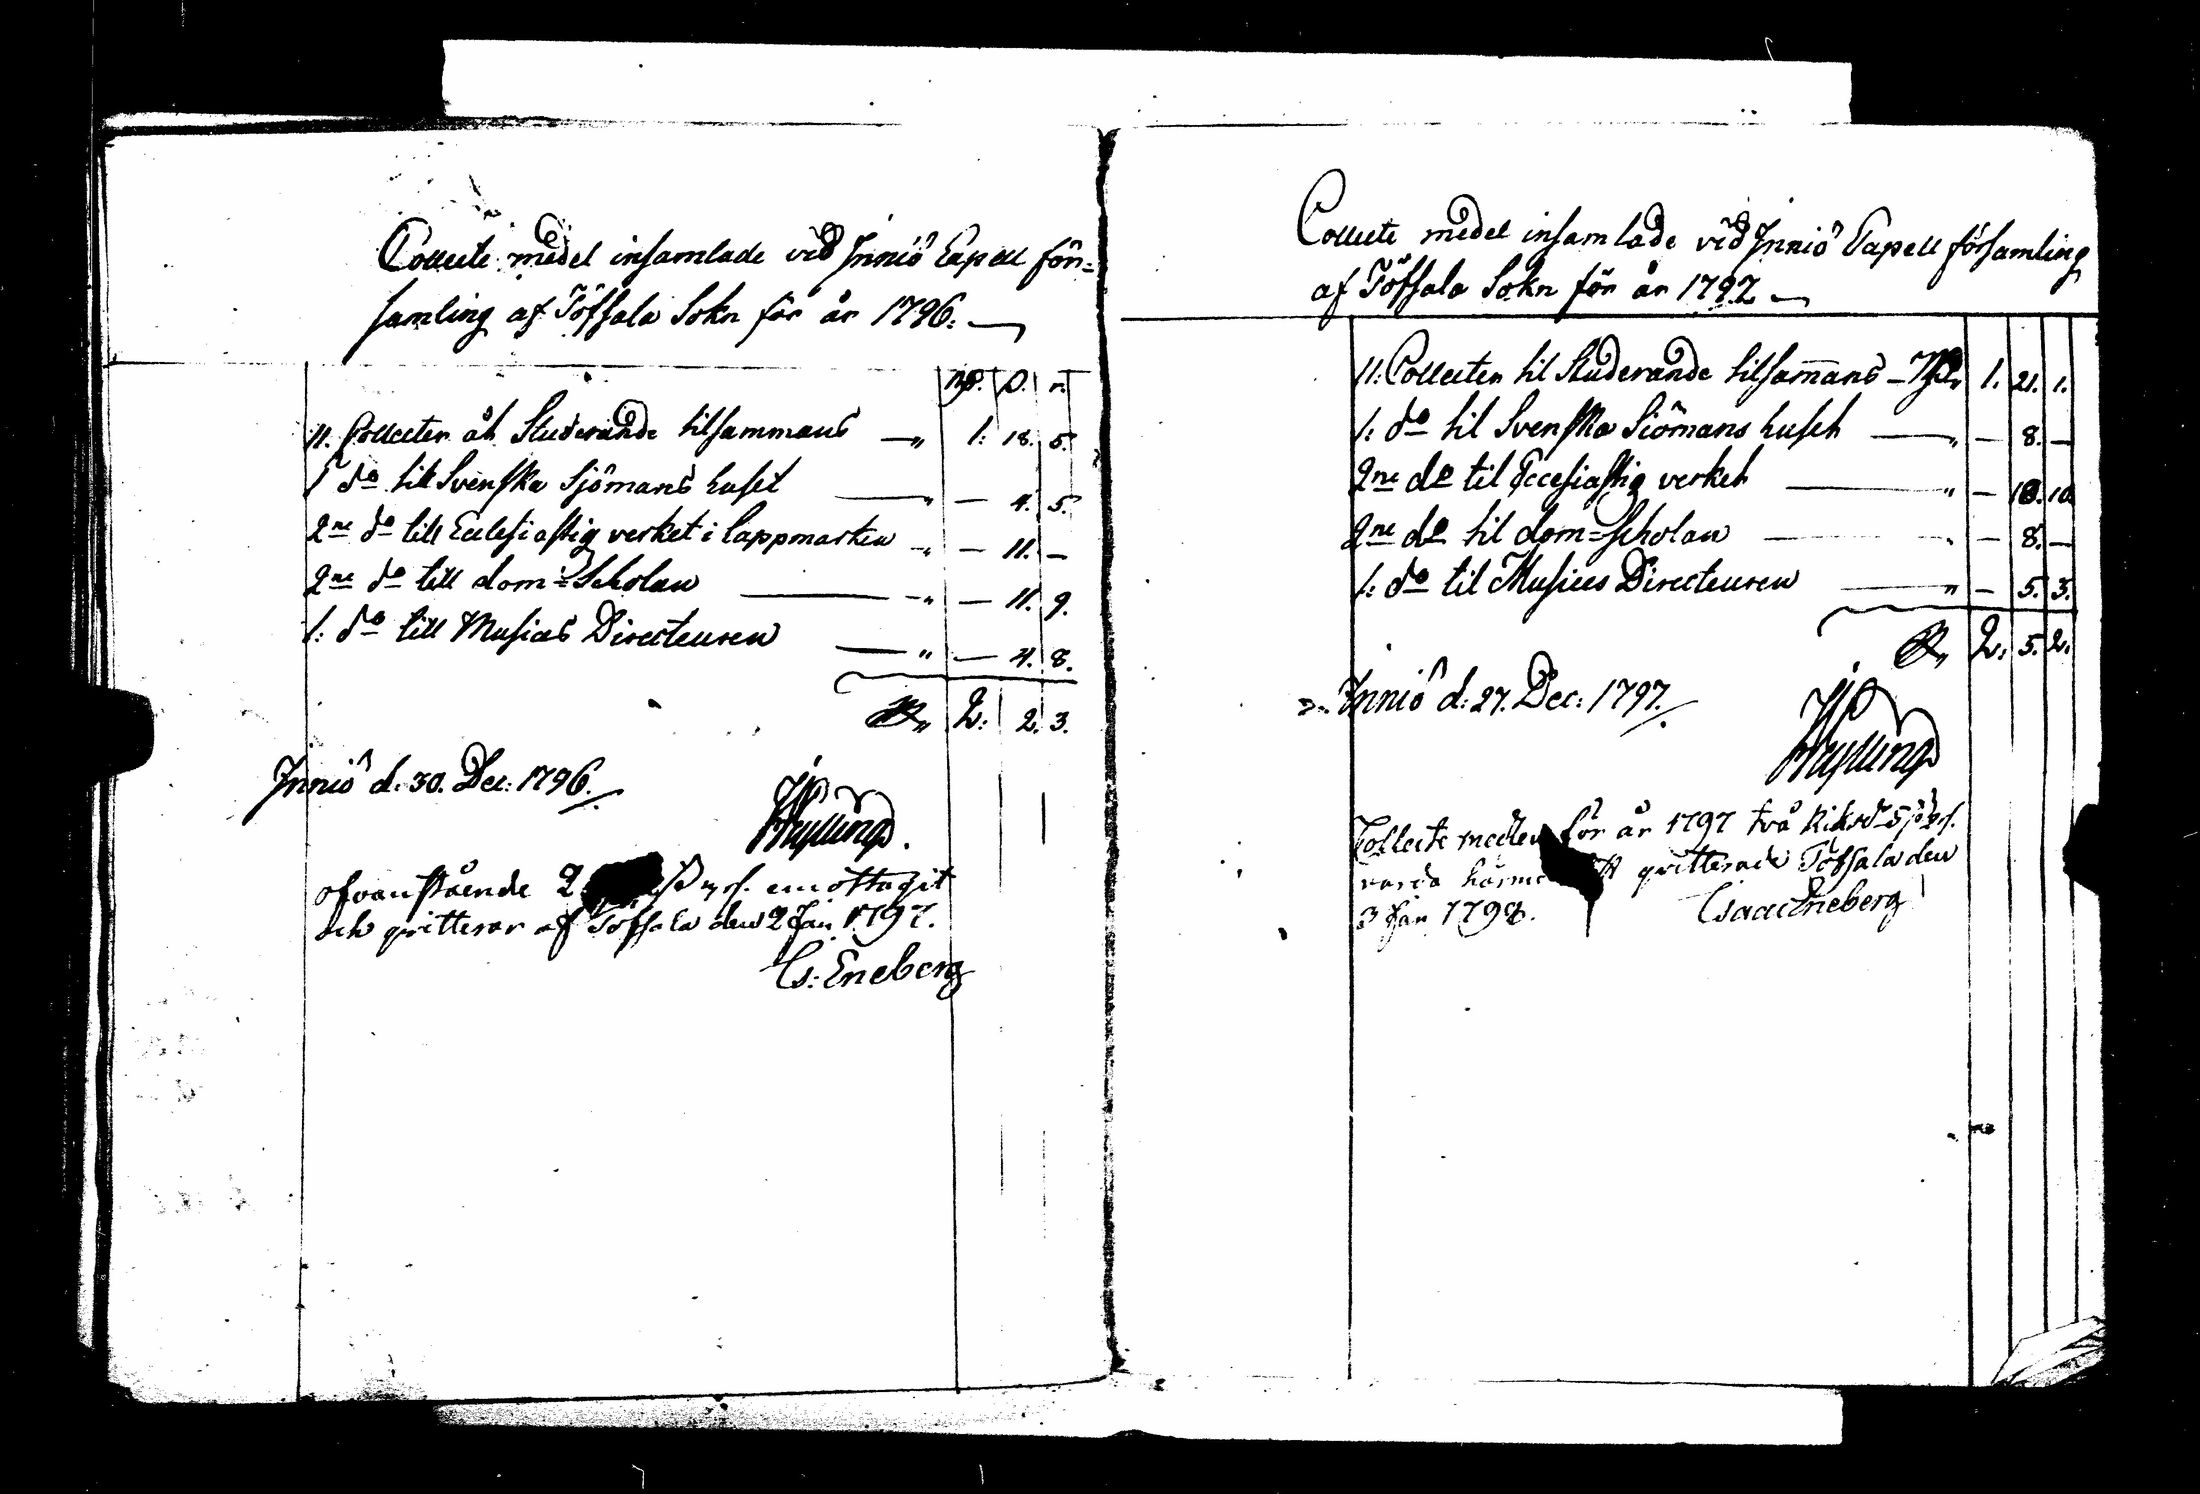 Collecte medel insamlade vid Jnniö Capell för=
samling af Töfsala Sokn för år 1796.
Rd. s. r.
11. Collecter åt Studerande tilsammans — " 1: 18. 5.
1 do till Svenska Sjömans huset — " — 4. 5.
2ne do till Eclesiastig verket i Lappmarken — " — 11. —
2ne do till dom=Scholan — " — 11. 9.
1: do till Musices Directeuren — " — 4. 8.
Rd 2: 2. 3.
Jnniö d. 30. Dec: 1796.
ofvanstående 2 emottagit
och qvitterar af Töfsala den 2 Jan 1797.
Is: Eneberg
Collecte medel insamlade vid Jnniö Capell församling
af Töfsala Sokn för år 1797
11: Collecter til Studerande tilsamans — Rd 1. 21. 1.
1: do til Svenska Siömans huset — " — 8. —
2ne do til Eccesiastig verket — " — 18. 10
2ne do til dom=scholan — " — 8. —
1: do til Musices Directeuren — " — 5. 3.
Rd 2: 5. 2.
Jnniö d: 27. Dec: 1797.
Collecte medlen för år 1797 två Riksd 5
varda qvitterade Töfsala den
3 Jan 1798. Isaac Eneberg